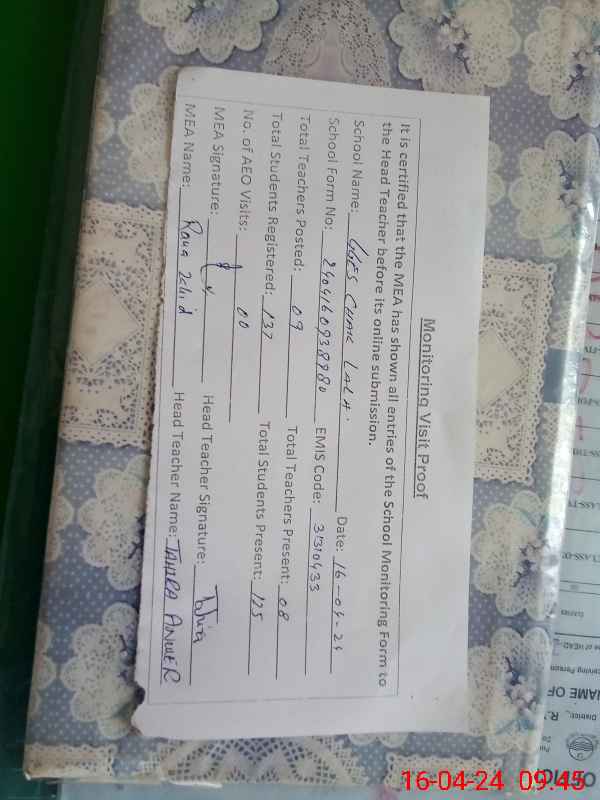 Monitoring Visit Proof
It is certified that the MEA has shown all entries of the School Monitoring Form to
the Head Teacher before its online submission.
School Name: GGES CHAK LALA. Date: 16-04-24
School Form No: EMIS Code: 31310433
Total Teachers Posted: 09 Total Teachers Present: 08
Total Students Registered: 137 Total Students Present: 125
No. of AEO Visits: 00
MEA Signature: Head Teacher Signature: Tahira
MEA Name: Rana Zahid Head Teacher Name: TAHIRA ANWER
NAME OF
District:
16-04-24 09:45